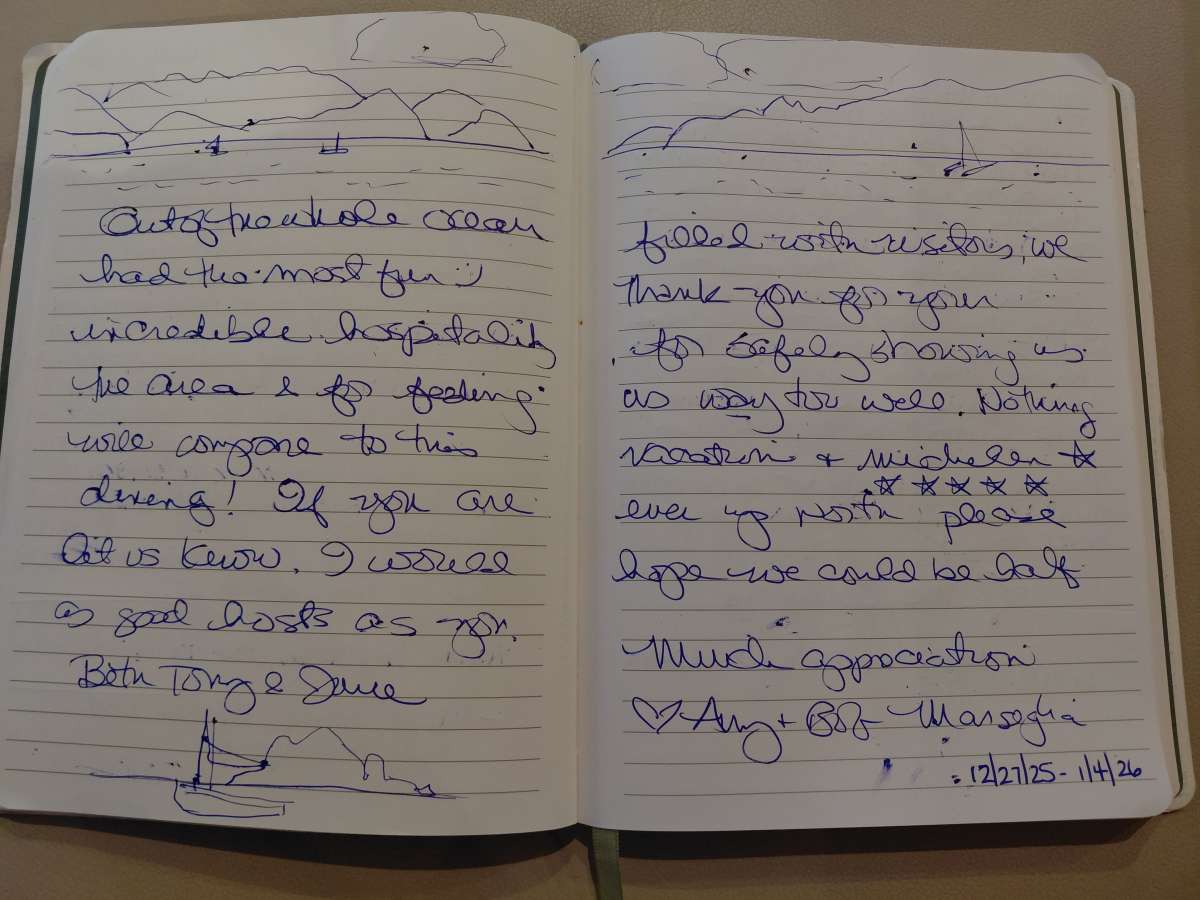 Out of the whole ocean
filled with visitors, we
had the most fun :)
Thank you for your
incredible hospitality
for safely showing us
the area & for feeding
us way too well. Nothing
will compare to this
vacation + michelen ☆
☆ ☆ ☆ ☆ ☆
dining! If you are
ever up north please
let us know. I would
hope we could be half
as good hosts as you.
Much appreciation
Both Tony &
♡ Amy + Bob Marseglia
12/27/25 - 1/4/26